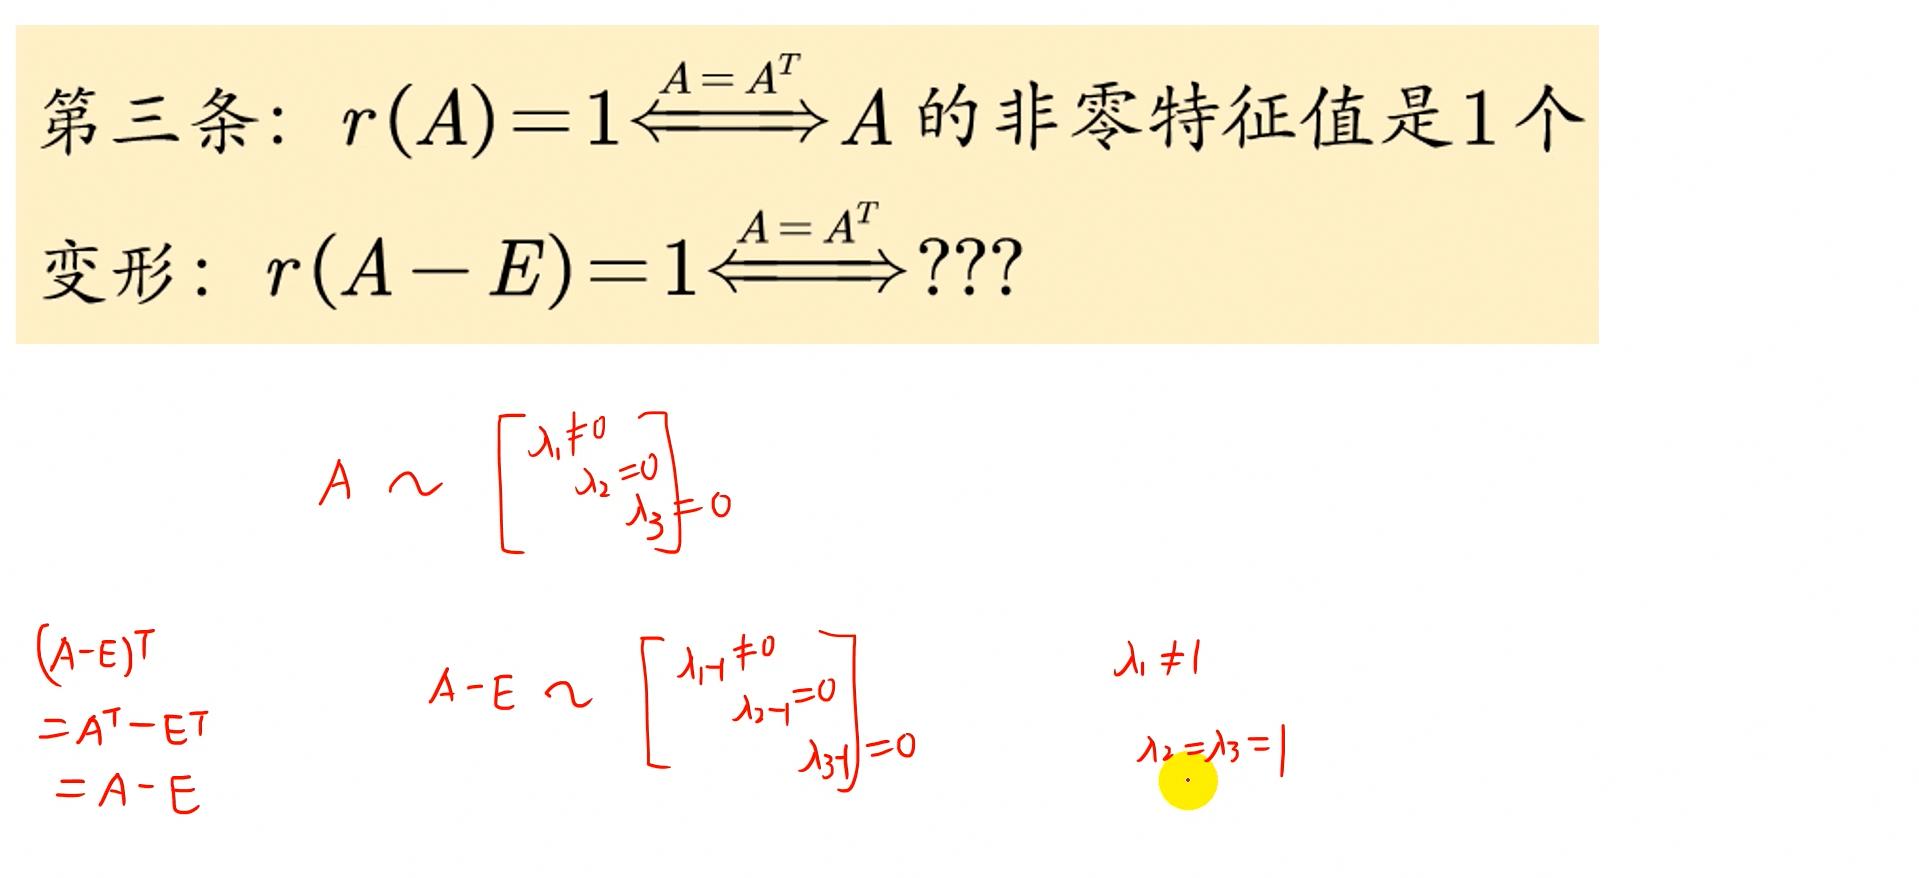 第三条：r(A)=1 A=A^T ⟺ A的非零特征值是1个
变形：r(A-E)=1 A=A^T ⟺ ???
A ~ [λ₁≠0
λ₂=0
λ₃=0]
(A-E)^T
=A^T-E^T
=A-E
A-E ~ [λ₁-1≠0
λ₂-1=0
λ₃-1=0]
λ₁≠1
λ₂=λ₃=1